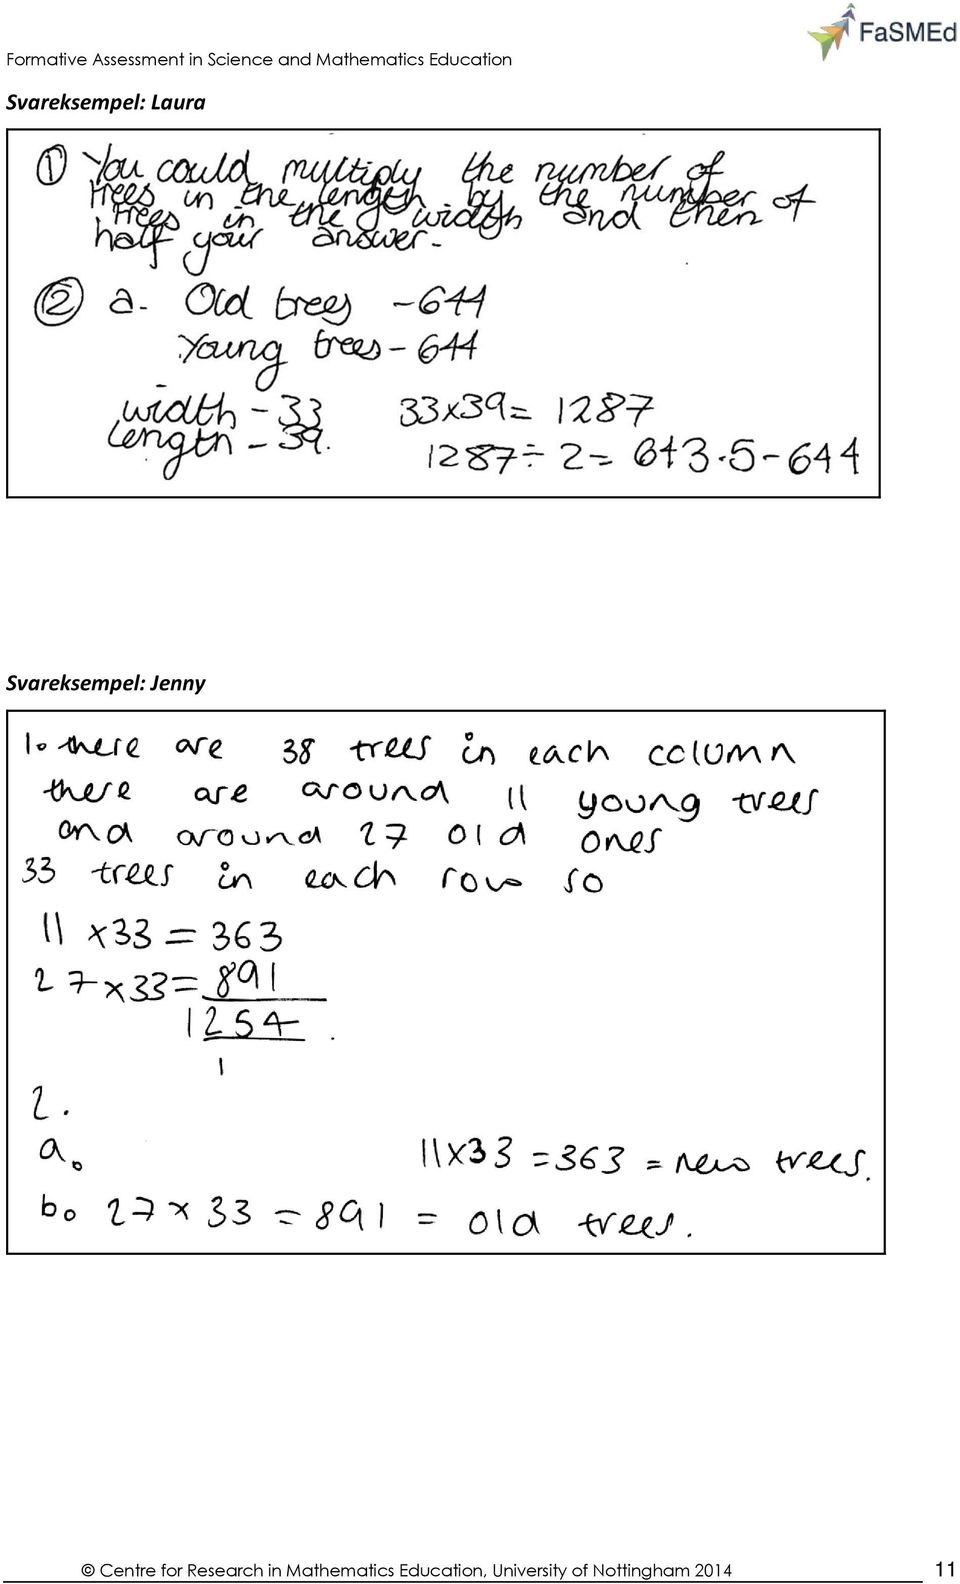 FaSMEd
Formative Assessment in Science and Mathematics Education
Svareksempel: Laura
① You could multiply the number of
trees in the length by the number of
trees in the width and then
half your answer.
② a. Old trees - 644
Young trees - 644
width - 33 33x39= 1287
length - 39. 1287÷2= 643.5-644
Svareksempel: Jenny
1. there are 38 trees in each column
there are around 11 young trees
and around 27 old ones
33 trees in each row so
11 x33 = 363
27x33= 891
1254
1
2.
a. 11x33 =363 = new trees.
b. 27 x 33 = 891 = old trees.
© Centre for Research in Mathematics Education, University of Nottingham 2014 11